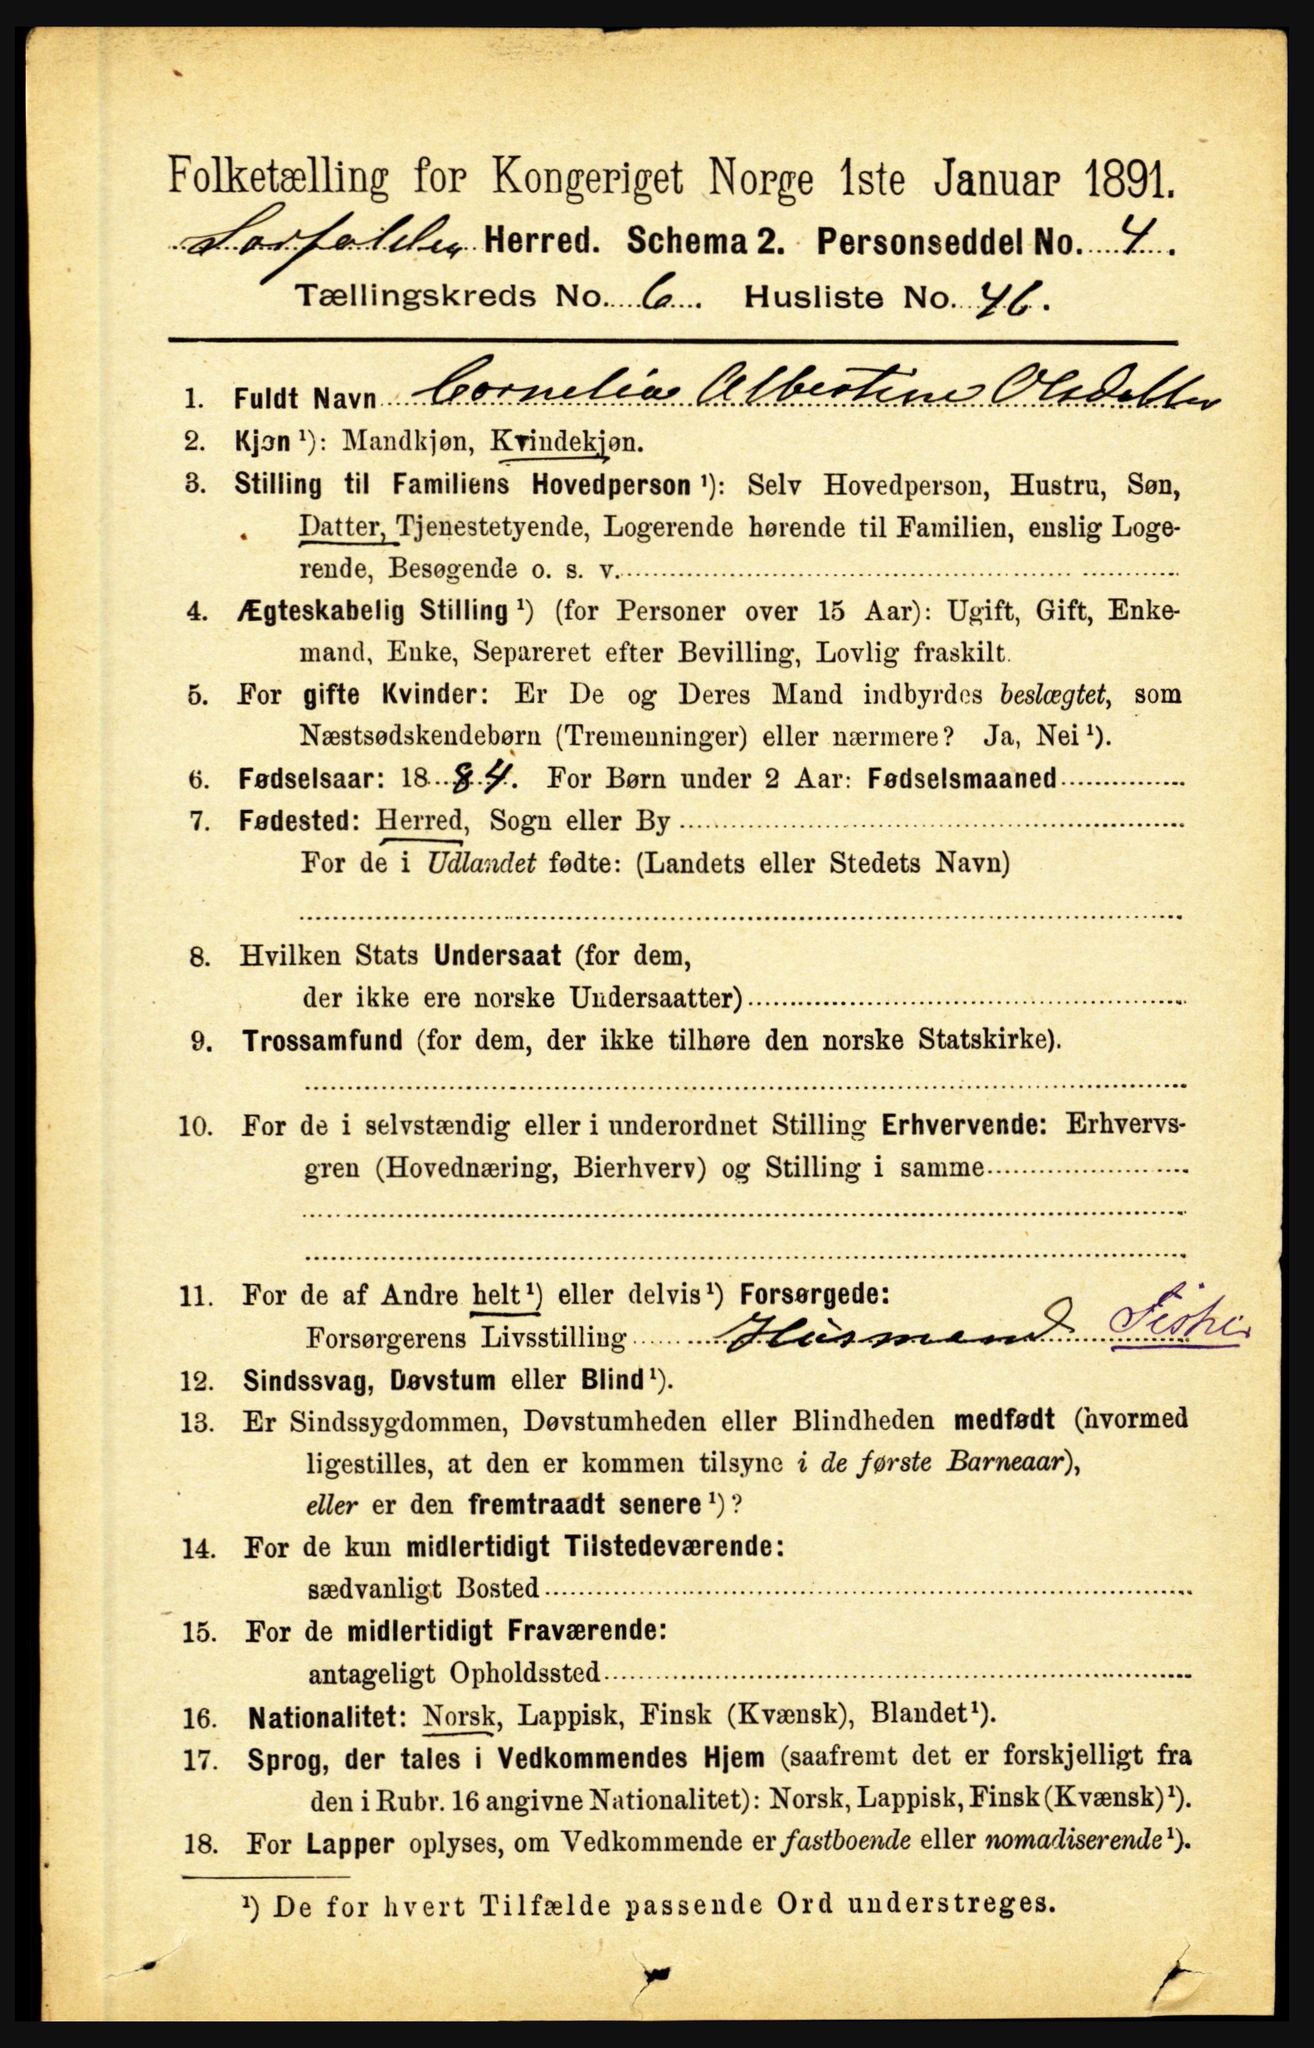 Folketælling for Kongeriget Norge 1ste Januar 1891.
Sørfolden Herred. Schema 2. Personseddel No. 4.
Tællingskreds No. 6. Husliste No. 46.
1. Fuldt Navn Cornelia Albertine Olsdatter
2. Kjøn ¹): Mandkjøn, Kvindekjøn.
3. Stilling til Familiens Hovedperson ¹): Selv Hovedperson, Hustru, Søn,
Datter, Tjenestetyende, Logerende hørende til Familien, enslig Loge-
rende, Besøgende o. s. v.
4. Ægteskabelig Stilling ¹) (for Personer over 15 Aar): Ugift, Gift, Enke-
mand, Enke, Separeret efter Bevilling, Lovlig fraskilt.
5. For gifte Kvinder: Er De og Deres Mand indbyrdes beslægtet, som
Næstsødskendebørn (Tremenninger) eller nærmere? Ja, Nei ¹).
6. Fødselsaar: 1884. For Børn under 2 Aar: Fødselsmaaned
7. Fødested: Herred, Sogn eller By
For de i Udlandet fødte: (Landets eller Stedets Navn)
8. Hvilken Stats Undersaat (for dem,
der ikke ere norske Undersaatter)
9. Trossamfund (for dem, der ikke tilhøre den norske Statskirke).
10. For de i selvstændig eller i underordnet Stilling Erhvervende: Erhvervs-
gren (Hovednæring, Bierhverv) og Stilling i samme
11. For de af Andre helt ¹) eller delvis ¹) Forsørgede:
Forsørgerens Livsstilling Husmand Fisker
12. Sindssvag, Døvstum eller Blind ¹).
13. Er Sindssygdommen, Døvstumheden eller Blindheden medfødt (hvormed
ligestilles, at den er kommen tilsyne i de første Barneaar),
eller er den fremtraadt senere ¹)?
14. For de kun midlertidigt Tilstedeværende:
sædvanligt Bosted
15. For de midlertidigt Fraværende:
antageligt Opholdssted
16. Nationalitet: Norsk, Lappisk, Finsk (Kvænsk), Blandet ¹).
17. Sprog, der tales i Vedkommendes Hjem (saafremt det er forskjelligt fra
den i Rubr. 16 angivne Nationalitet): Norsk, Lappisk, Finsk (Kvænsk) ¹).
18. For Lapper oplyses, om Vedkommende er fastboende eller nomadiserende ¹).
¹) De for hvert Tilfælde passende Ord understreges.